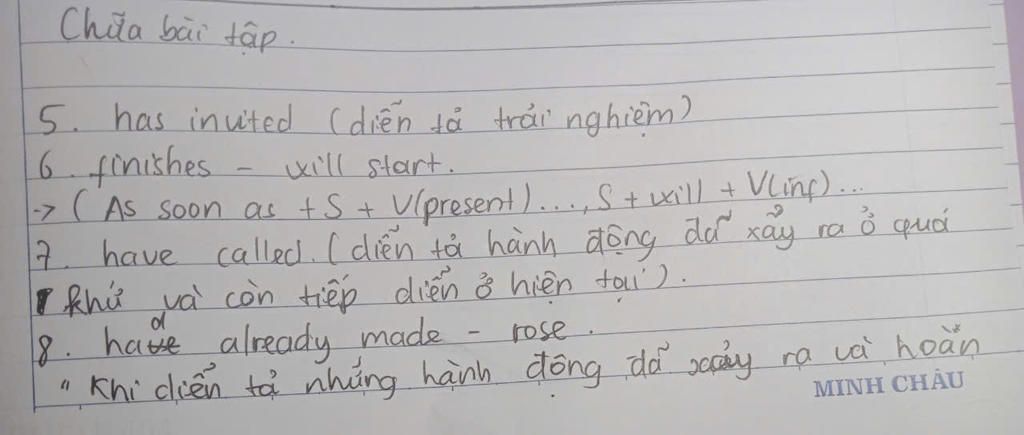 Chữa bài tập.
5. has invited (diễn tả trải nghiệm)
6. finishes - will start.
-> (As soon as + S + V(present)..., S + will + V(inf)...
7. have called. (diễn tả hành động đã xảy ra ở quá
khứ và còn tiếp diễn ở hiện tại).
8. had already made - rose.
" Khi diễn tả những hành động đã xảy ra và hoằn
MINH CHÂU